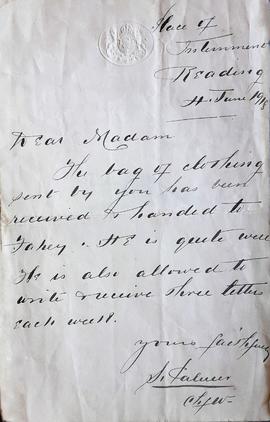 Place of
Internment
Reading
4 June 1918
Dear Madam
The bag of clothing
sent by you has been
received & handed to
Fahey. He is quite well
He is also allowed to
write & receive three letters
each week.
yours faithfully